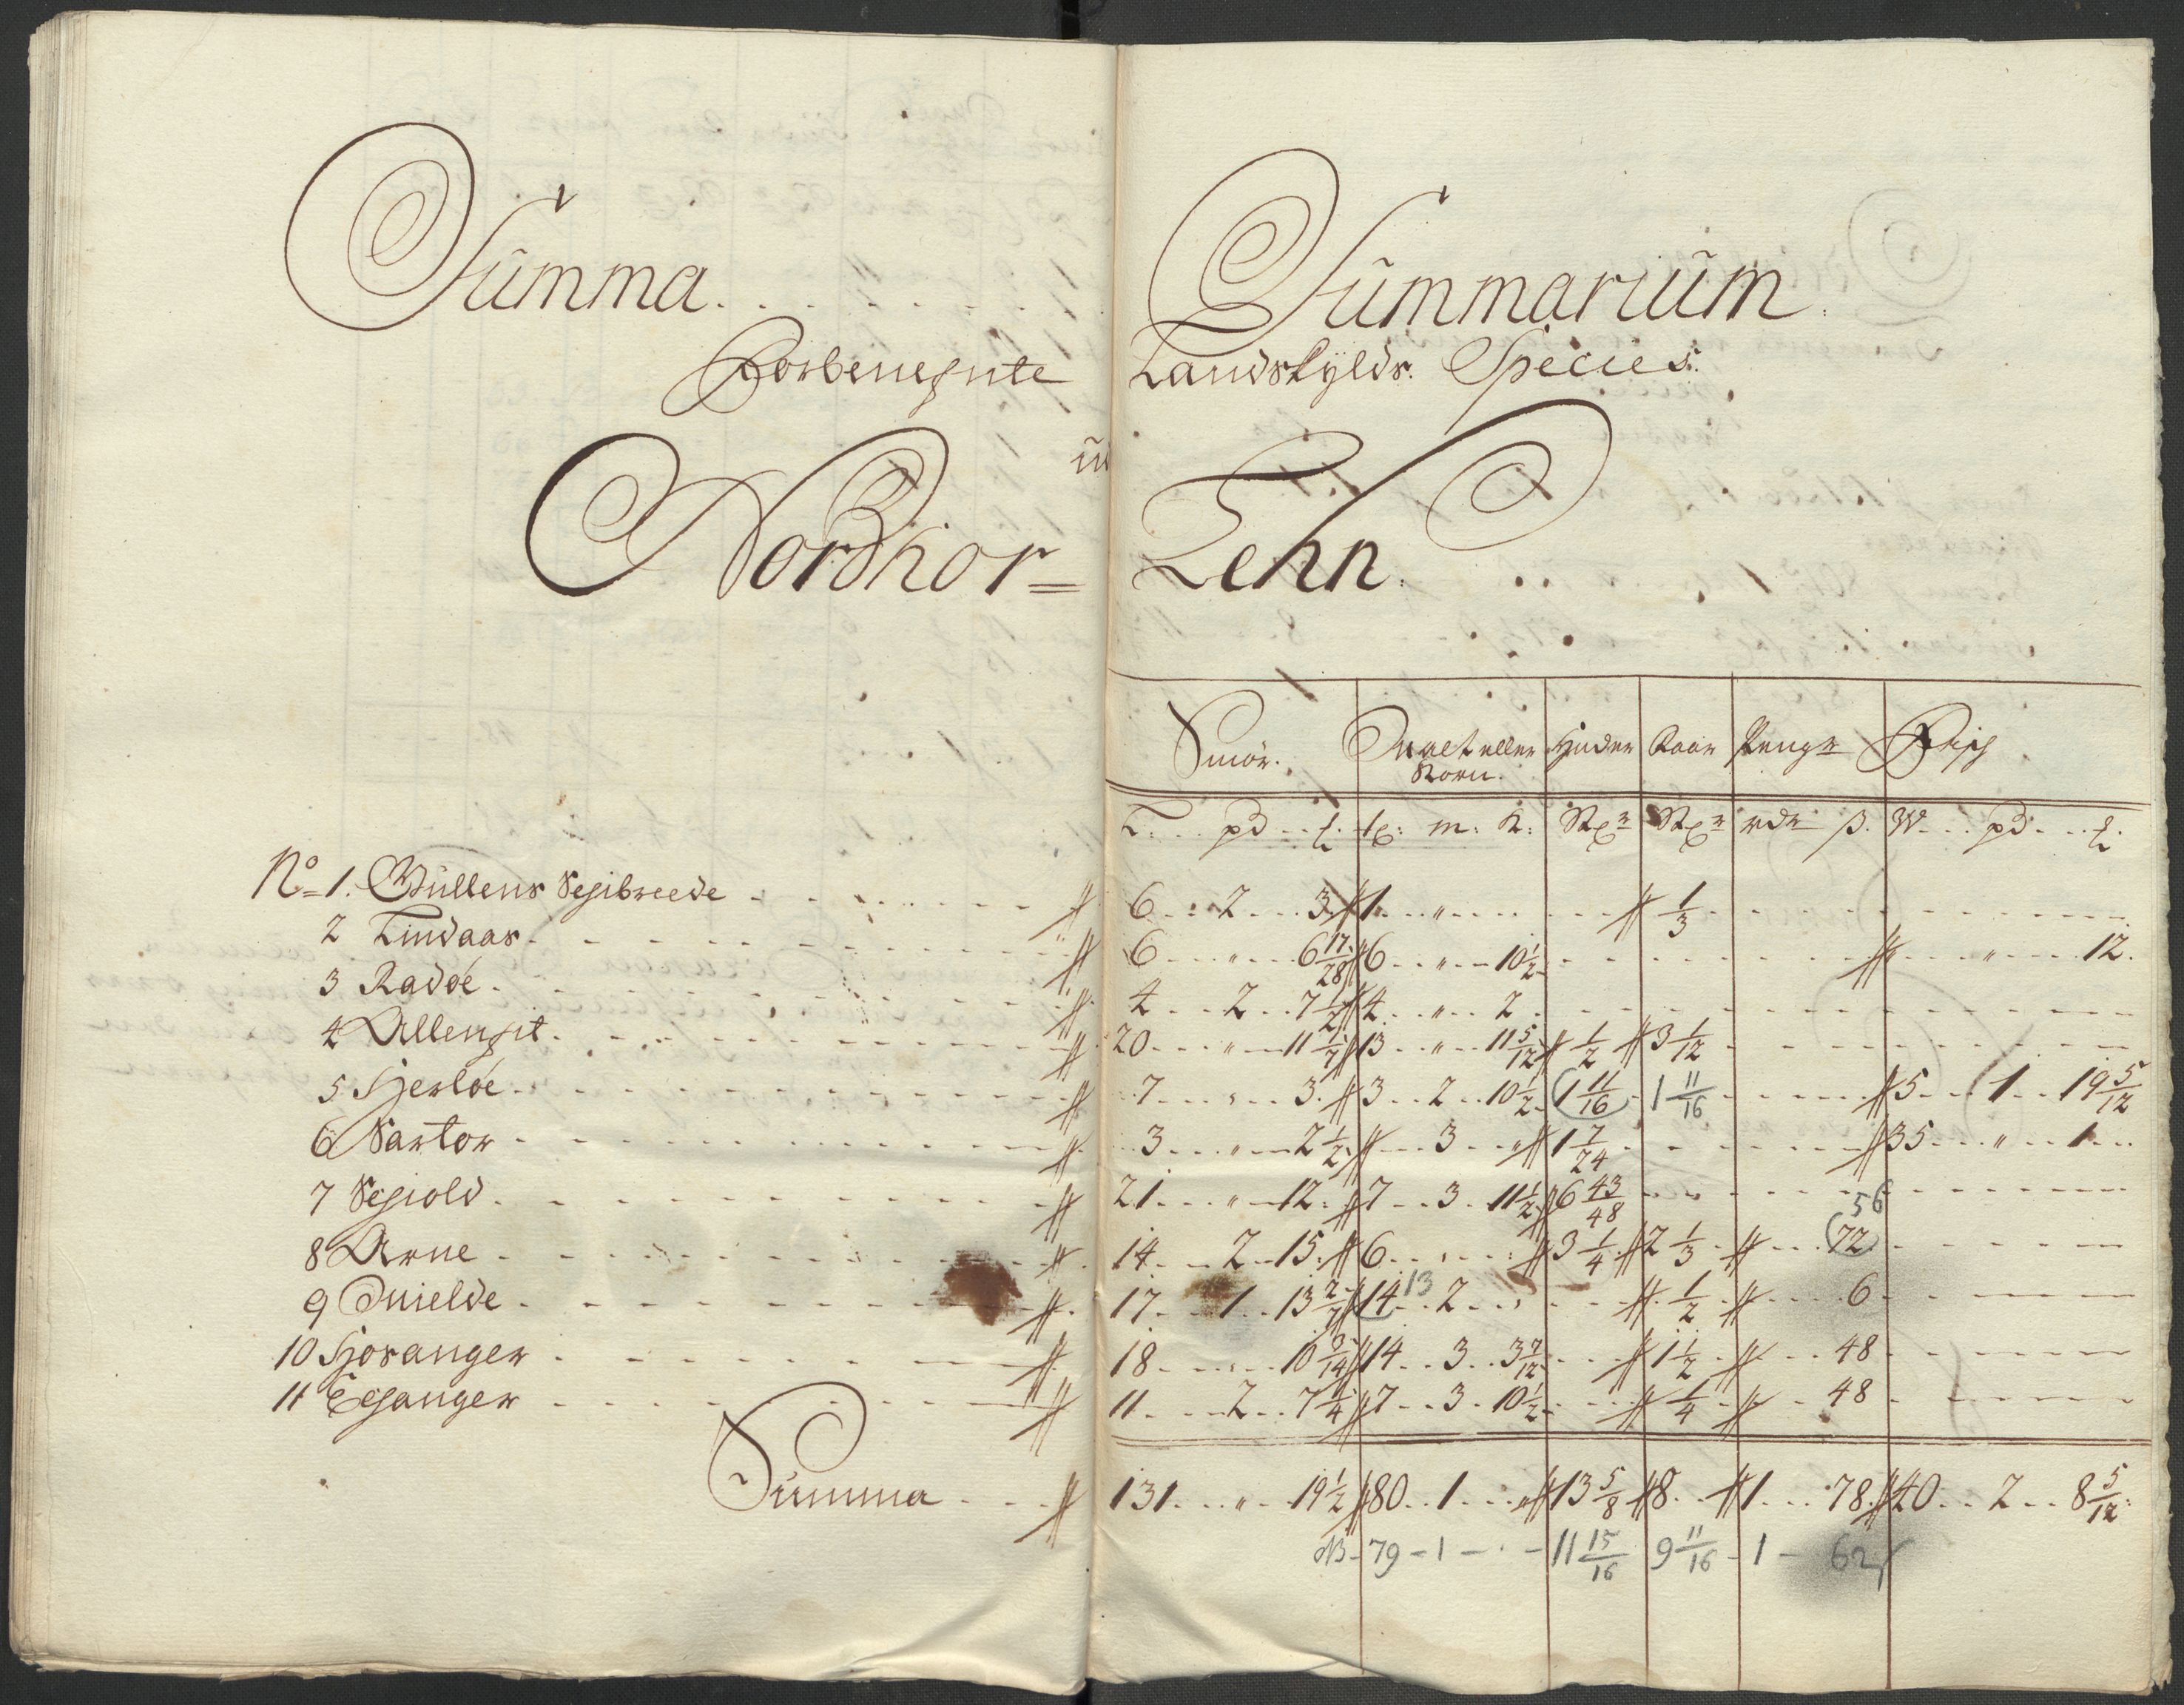 Summa . . . . . . . Summarium.
Forbenefnte Landskylds. Species.
Nordhor= Lehn.
Smör. Malt eller Korn. Huder Kaar Penge Fisk
L. pd. t: m: K: Rdr ß. W. pd.
No 1. Gullens Schibreede 6 2 3 1 " 1/3
2 Lindaas 6 " 6 17/28 6 " 10 1/2 " " 12.
3 Radöe 4 2 7 1/2 4 " 2
4 Allenfit 20 " 11 1/7 13 " 11 5/12 1/2 3 1/12
5 Herlöe 7 " 3. 3 2 10 1/2 1 11/16 1 11/16 5 1 19 5/12
6 Sartor 3 " 2 1/2 3 " 1 7/24 35 " 1
7 Schiold 21 " 12. 7 3 11 1/2 6 43/48
56
8 Arne 14 2 15. 6 3 1/4 2 1/3 72.
9 Mielde 17 1 13 2/7 14 13 2 1/2 6
10 Hosanger 18 10 3/14 14 3 3 7/12 1 1/2 48
11 Echanger 11 2 7 1/4 7 3 10 1/2 1/4 48
Summa 131 " 19 1/2 80 1 " 13 5/8 8 1 78. 40 2 8 5/12
NB - 79 - 1 - - 11 15/16 9 11/16 - 1 - 62